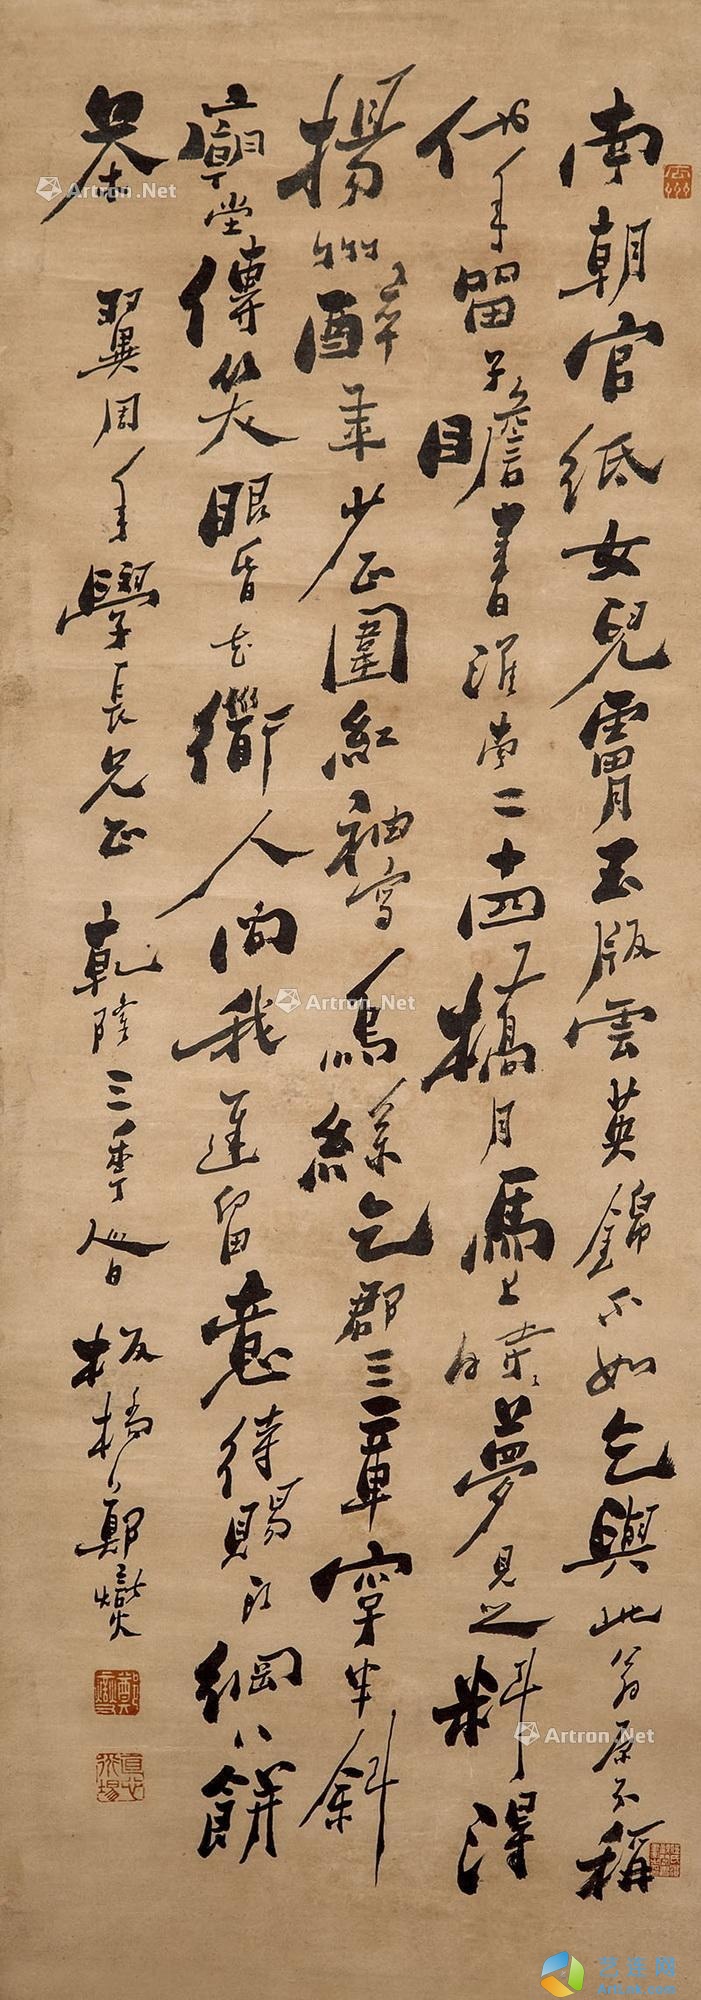 南朝官紙女兒膚玉版雲英錦不如乞與此翁原不稱
他年留子瞻書淮南二十四橋月馬上時時夢見之料得
揚州醉年少正圍紅袖寫烏絲乞郡三章字半斜
廟堂傳笑眼昏花衙人問我遲留意待賜頭綱八餅
茶
翼周年學長兄正 乾隆三季 板橋鄭燮
Artron.Net
Artron.Net
Artron.Net
Artron.Net
Artron.Net
艺连网
ArtLink.com